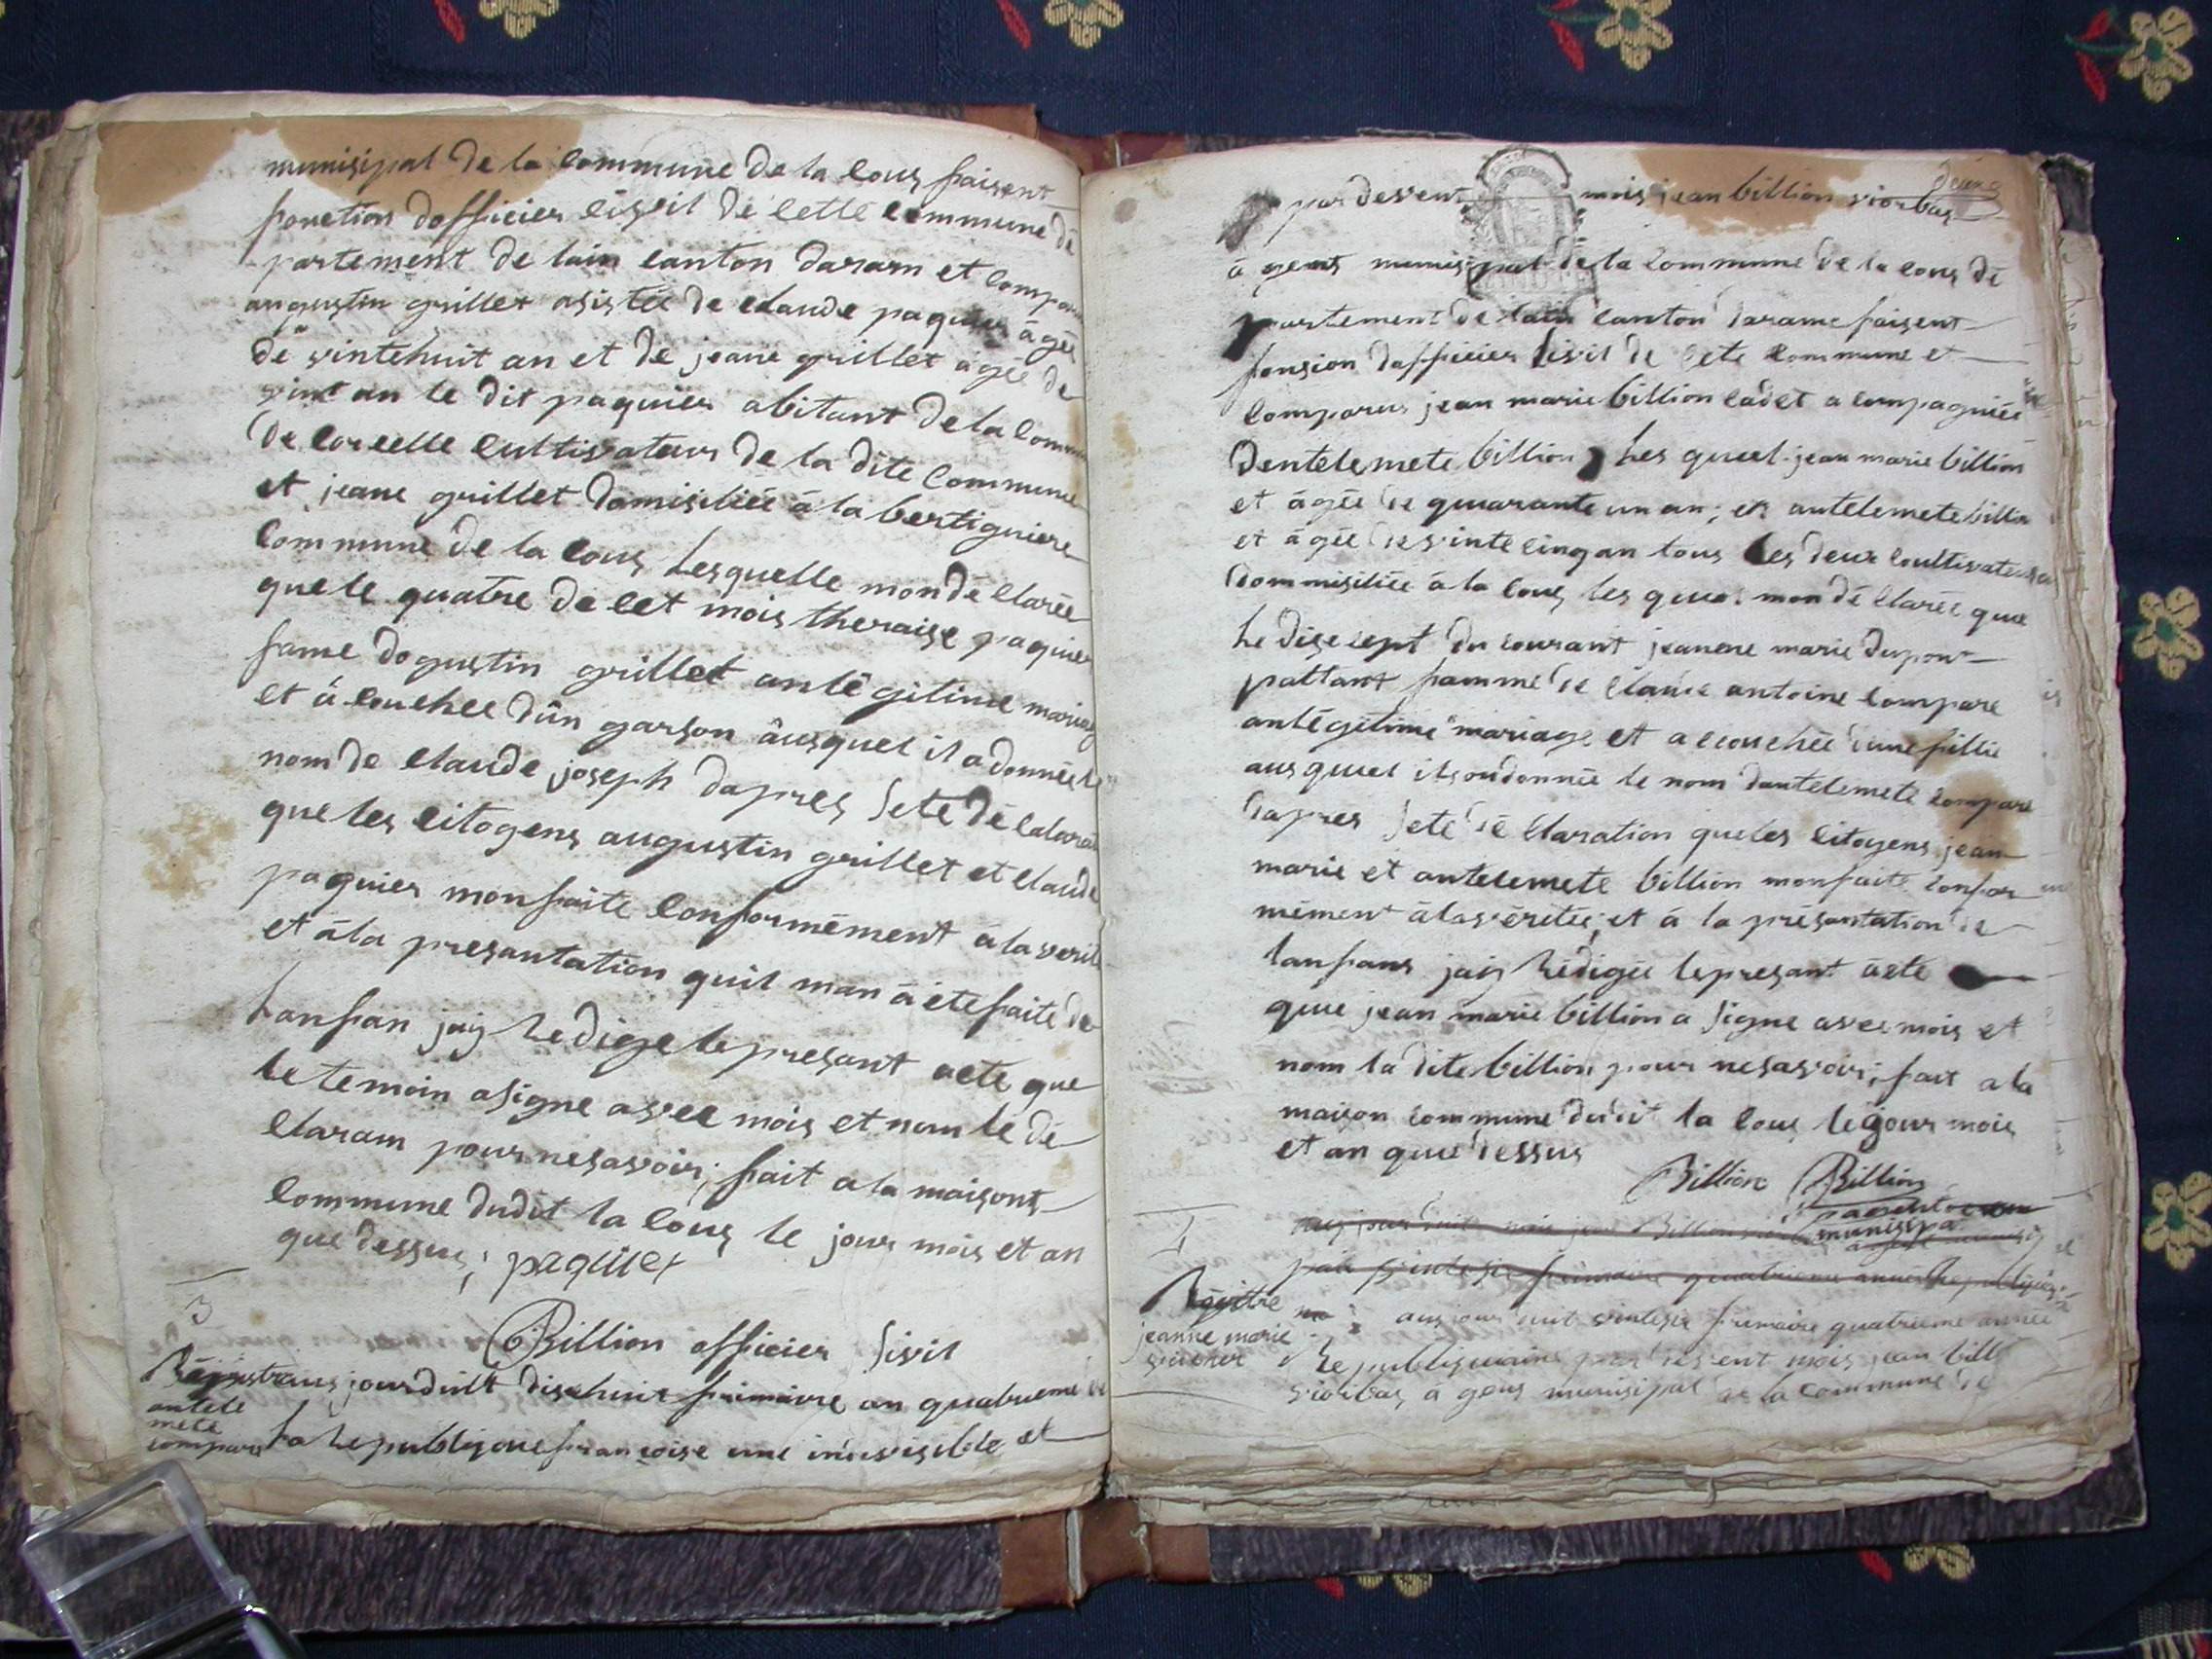 munisipal de la commune de la cous faisent
fonction dofficier cisvil de cette commune dé
partement de lain canton daram et compar
augustin grillet asistée de claude paquier agée
dé vintehuit an et de jeane grillet agée de
vint an le dit paquier abitant de la comm
de corcelle cultivateur de la dite commune
et jeane grillet domisiliée à la bertiguiere
commune de la cous Lesquelle mon dé clarée
que le quatre de cet mois theraise paquier
fame dogustin grillet an légitime mariag
et á couchee dûn garson âusquel il a donnée le
nom de claude joseph dapres sete dé calara
que les citogens augustin grillet et claude
paquier mon faite conformément a la verite
et à la presantation quil man à ete faite de
Lanfan jaiy redige le presant acte que
le temoin asigne avec mois et nom le dé
claram pour nesavoir; fait a la maisons
commune dudit la cous le jour mois et an
que dessus; paquier
3
Billion officier sivil
Régistr aus jourduit diszhuit frimaire an quatrieme de
antele
mete
compare La republique françoise une indivisible et
par devent mois jean billion viorbas
à gent munisipal de la commune de la cous dé
partement de lain canton darame faisent
fonsion dofficier sivil de cete commune et
comparus jean marie billion cadet a compagniée
dentelemete billion Les quel jean marie billion
et âgée de quarante un an; et antelemete billion
et âgée de vinte cinq an tous les deux coultivateur
dommisiliée à la cous les quel mon dé clarée que
Le dise sept du courant jeanene marie dupont
pattant famme de claude antoine compare
an légitime mariage et a ccouchée dune fillie
aus quel ils on donnée le nom dantelemete compare
dapres sete dé claration que les citoyens jean
marie et antelemete billion mon faite confor
mément à la véritée; et à la présantation de
lanfans jaiy rédigée le presant àcte
que jean marie billion a signe avec mois et
nom la dite billion pour nesavoir; fait a la
maison commune dudit la cous le jour mois
et an que dessus
Billion Billion
munissipa
Régitre
jeanne marie
aus jour duit vintesis frimaire quatrieme année
Republiquaine par devent mois jean bill
viorbas à gens munisipal de la commune de